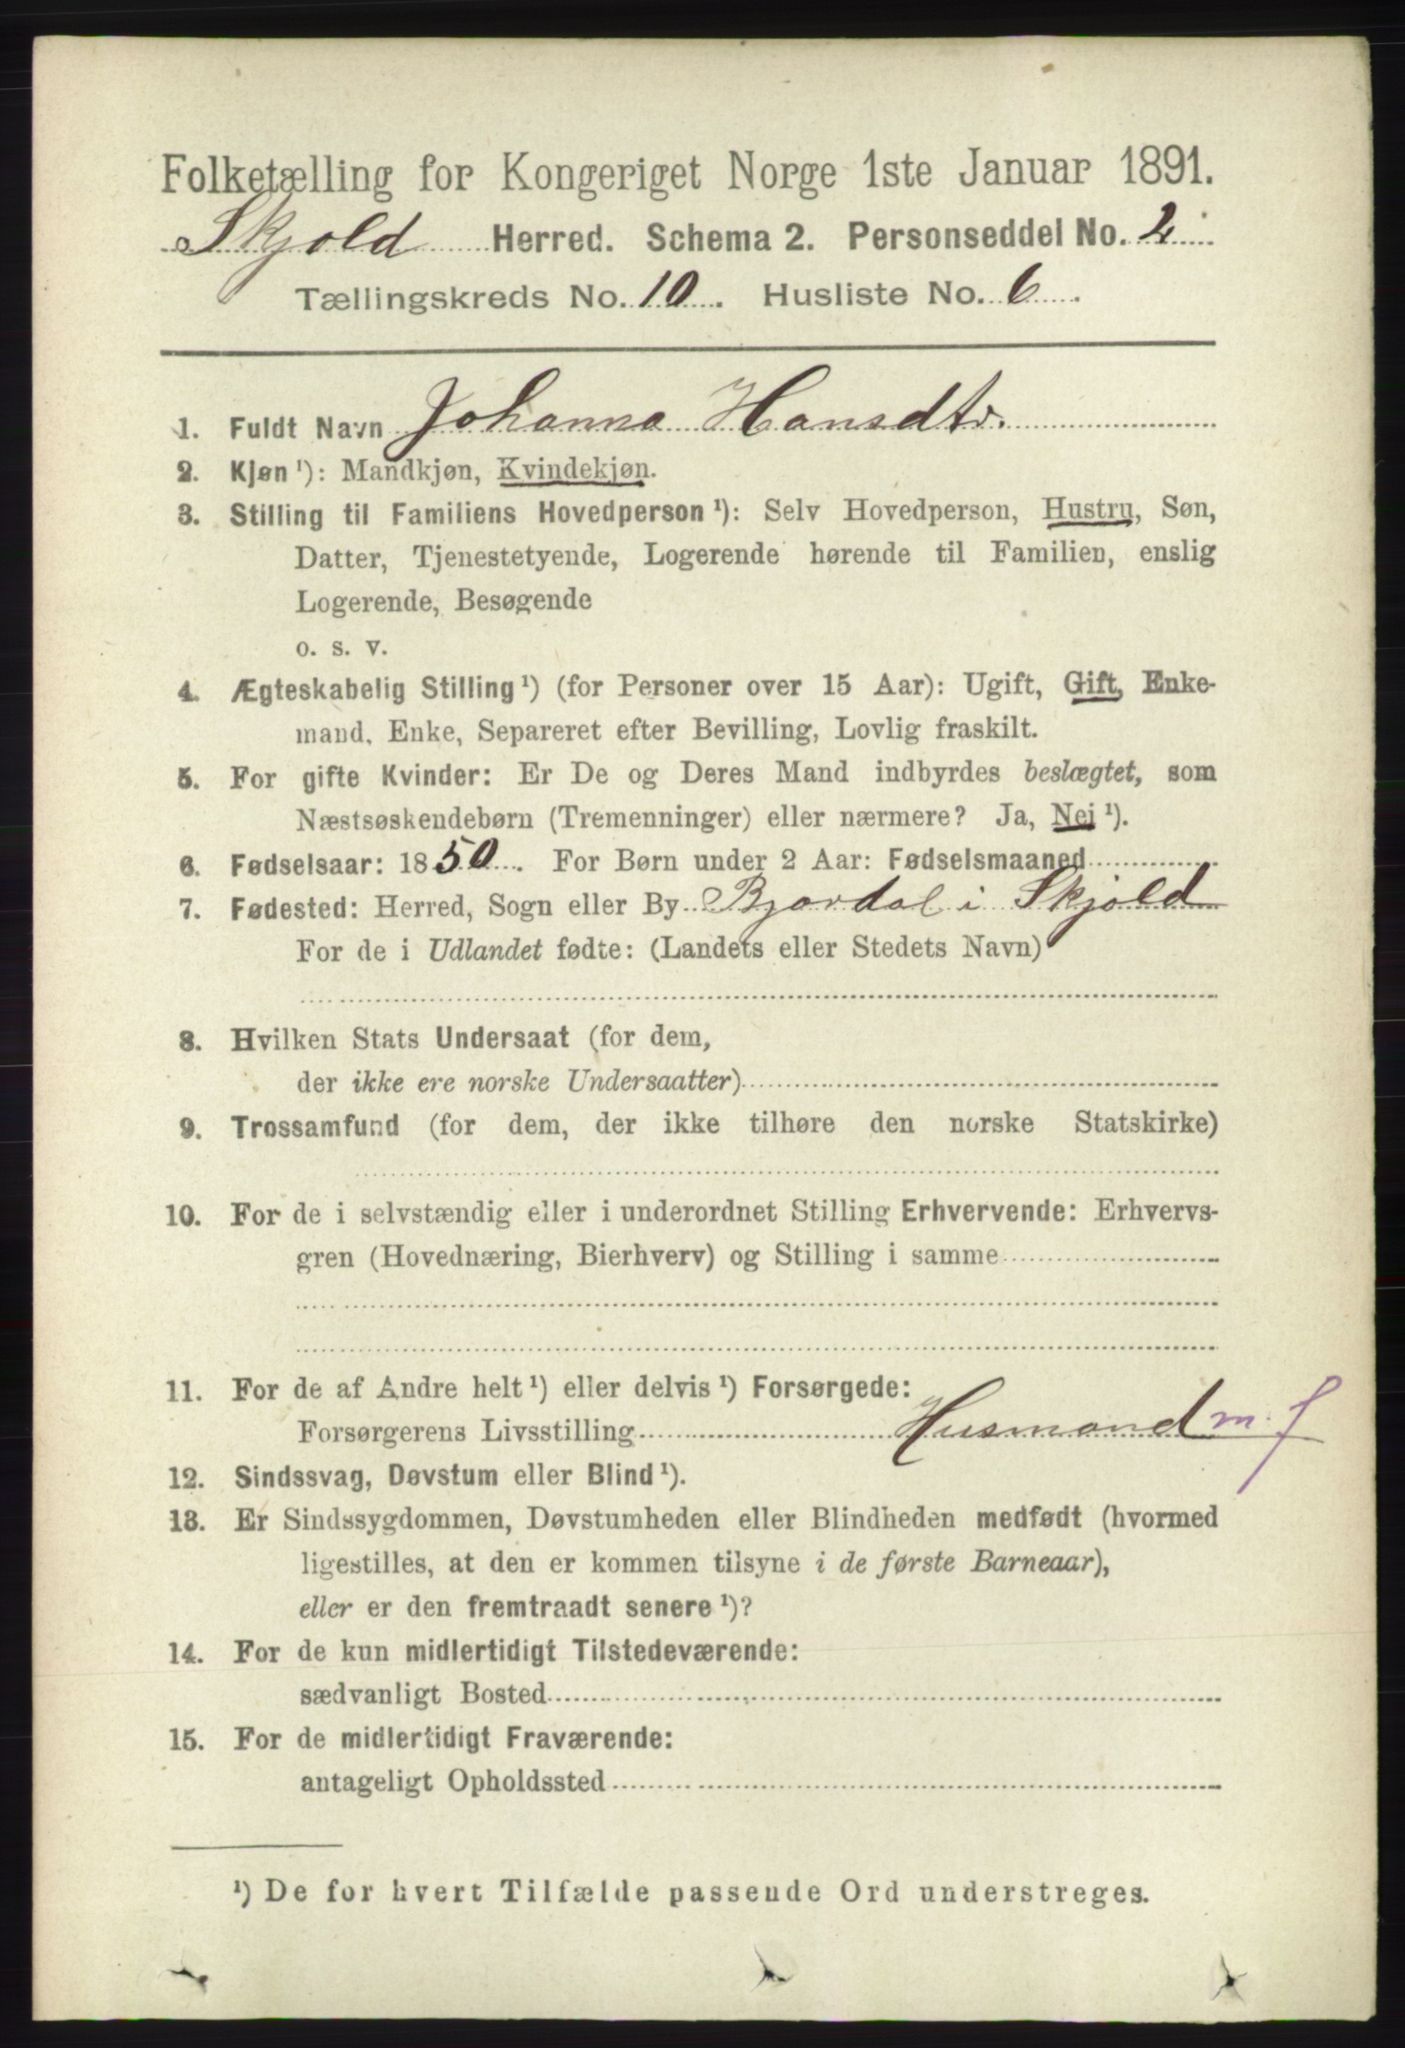 Folketælling for Kongeriget Norge 1ste Januar 1891.
Skjold Herred. Schema 2. Personseddel No. 2
Tællingskreds No. 10. Husliste No. 6.
1. Fuldt Navn Johanna Hansdtr.
2. Kjøn ¹): Mandkjøn, Kvindekjøn.
3. Stilling til Familiens Hovedperson ¹): Selv Hovedperson, Hustru, Søn,
Datter, Tjenestetyende, Logerende hørende til Familien, enslig
Logerende, Besøgende
o. s. v.
4. Ægteskabelig Stilling ¹) (for Personer over 15 Aar): Ugift, Gift, Enke-
mand, Enke, Separeret efter Bevilling, Lovlig fraskilt.
5. For gifte Kvinder: Er De og Deres Mand indbyrdes beslægtet, som
Næstsøskendebørn (Tremenninger) eller nærmere? Ja, Nei ¹).
6. Fødselsaar: 1850. For Børn under 2 Aar: Fødselsmaaned
7. Fødested: Herred, Sogn eller By Bjordal i Skjold
For de i Udlandet fødte: (Landets eller Stedets Navn)
8. Hvilken Stats Undersaat (for dem,
der ikke ere norske Undersaatter)
9. Trossamfund (for dem, der ikke tilhøre den norske Statskirke)
10. For de i selvstændig eller i underordnet Stilling Erhvervende: Erhvervs-
gren (Hovednæring, Bierhverv) og Stilling i samme
11. For de af Andre helt ¹) eller delvis ¹) Forsørgede:
Forsørgerens Livsstilling Husmand m. j
12. Sindssvag, Døvstum eller Blind ¹).
13. Er Sindssygdommen, Døvstumheden eller Blindheden medfødt (hvormed
ligestilles, at den er kommen tilsyne i de første Barneaar),
eller er den fremtraadt senere ¹)?
14. For de kun midlertidigt Tilstedeværende:
sædvanligt Bosted
15. For de midlertidigt Fraværende:
antageligt Opholdssted
¹) De for hvert Tilfælde passende Ord understreges.